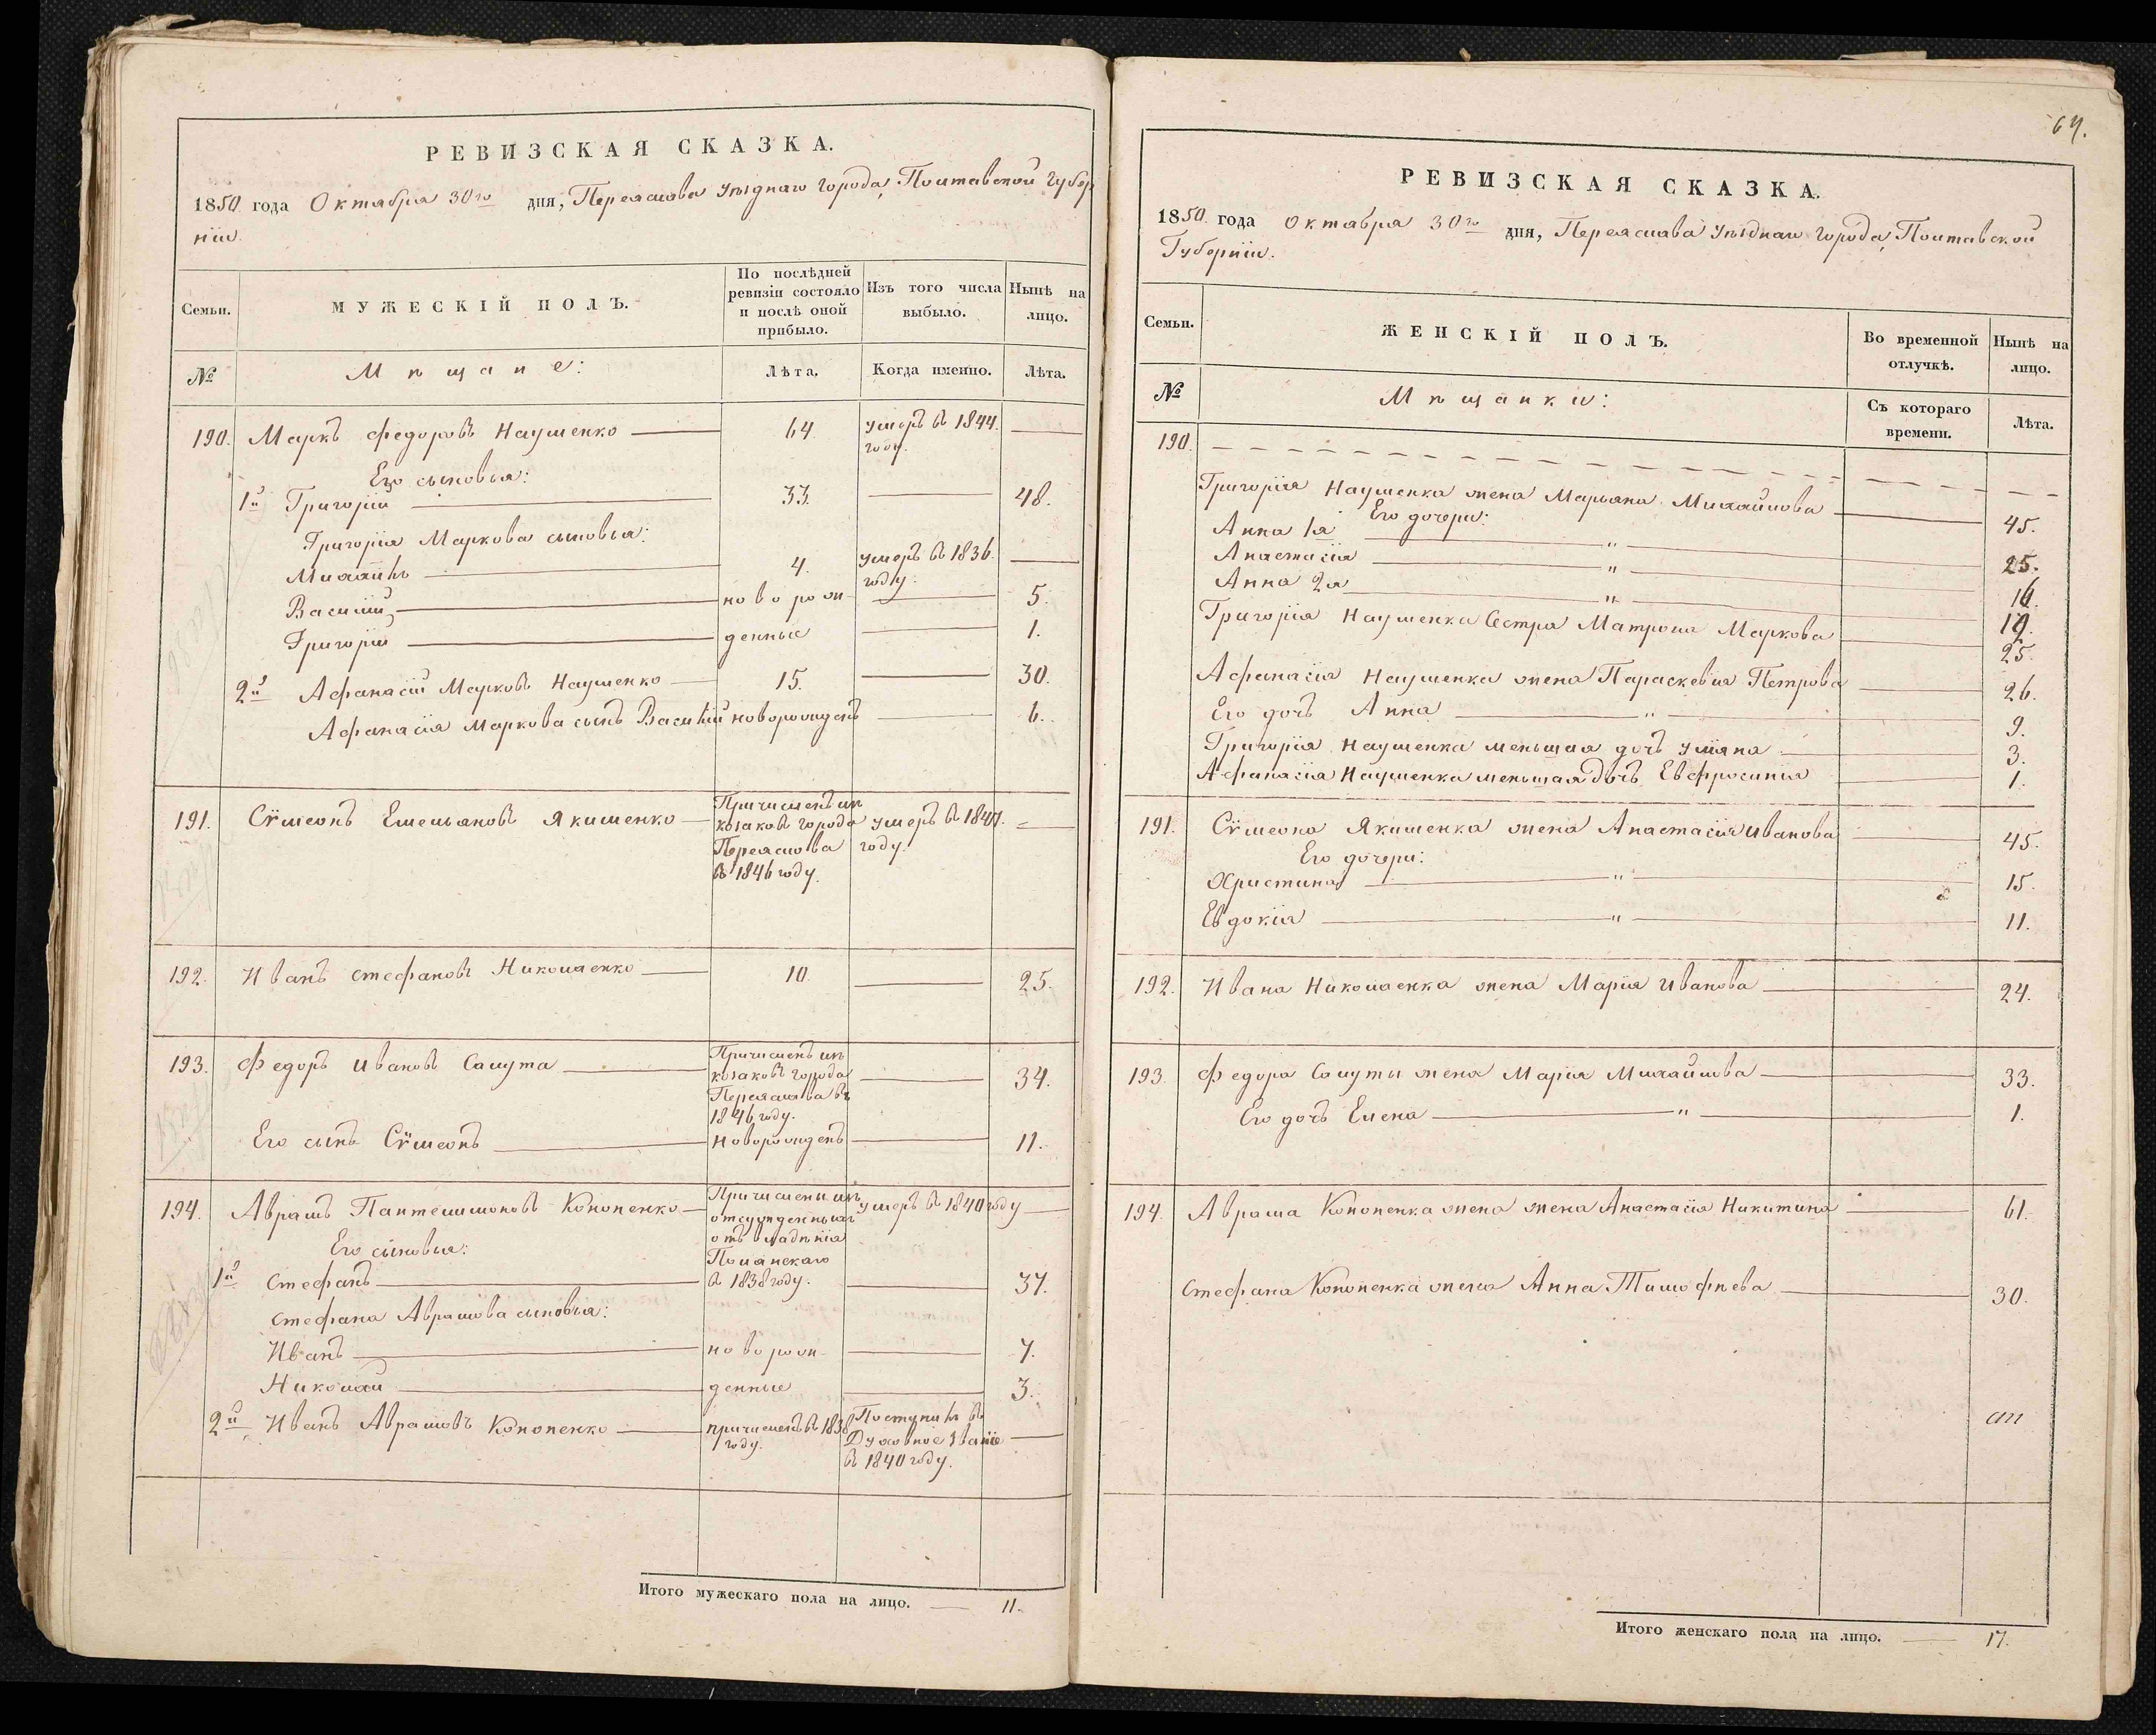 РЕВИЗСКАЯ СКАЗКА.
1850 года Октября 30го дня, Переяслава уѣзднаго города, Полтавской Губер
ніи.
Семьи.
МУЖЕСКІЙ ПОЛЪ.
По послѣдней
ревизіи состояло
и послѣ оной
прибыло.
Изъ того числа
выбыло.
Нынѣ на
лицо.
№
Мѣщане:
Лѣта.
Когда именно.
Лѣта.
190. Маркъ Федоровъ Наушенко 64. умеръ въ 1844.
году.
Его сыновья:
1й Григорій 33. 48.
Григорія Маркова сыновья:
Михаилъ 4. умеръ въ 1836.
году.
Василій новорож 5.
Григорій денные 1.
2й Афанасій Марковъ Наушенко 15. 30.
Афанасія Маркова сынъ Василій новорожденъ 6.
191. Сѵмеонъ Емельяновъ Якименко Причисленъ изъ
козаковъ города умеръ въ 1847.
Переяслава году.
въ 1846 году.
192. Иванъ Стефановъ Николаенко 10. 25.
193. Федоръ Ивановъ Салута Причисленъ изъ
козаковъ города 34.
Переяслава въ
1846 году.
Его сынъ Сѵмеонъ новорожденъ 11.
194. Аврамъ Пантелимоновъ Кононенко Причислены изъ умеръ въ 1840 году
отсужденныхъ
Его сыновья: отъ владѣнія
1й Стефанъ въ 1838 году. 37.
Стефана Аврамова сыновья:
Иванъ новорож 7.
Николай денные 3.
2й Иванъ Аврамовъ Кононенко причисленъ въ 1838 Поступилъ въ
году. Духовное званіе
въ 1840 году.
Итого мужескаго пола на лицо. 11.
64.
РЕВИЗСКАЯ СКАЗКА.
1850 года Октября 30го дня, Переяслава уѣзднаго города, Полтавской
Губерніи.
Семьи.
ЖЕНСКІЙ ПОЛЪ.
Во временной
отлучкѣ.
Нынѣ на
лицо.
№
Мѣщанки:
Съ котораго
времени.
Лѣта.
190.
Григорія Наушенка жена Марьяна Михайлова 45.
Его дочери:
Анна 1я " 25.
Анастасія " 16.
Анна 2я "
Григорія Наушенка Сестра Матрона Маркова 25.
Афанасія Наушенка жена Параскевія Петрова 26.
Его дочь Анна " 9.
Григорія Наушенка меньшая дочь Уліяна 3.
Афанасія Наушенка меньшая дочь Евфросинія 1.
191. Сѵмеона Якименка жена Анастасія Иванова 45.
Его дочери:
Христина " 15.
Евдокія " 11.
192. Ивана Николаенка жена Марія Иванова 24.
193. Федора Салуты жена Марія Михайлова 33.
Его дочь Елена " 1.
194. Аврама Кононенка жена жена Анастасія Никитина 61.
Стефана Кононенка жена Анна Тимофѣева 30.
Итого женскаго пола на лицо. 17.